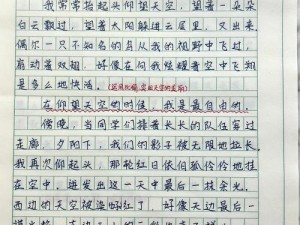 我常常抬起头仰望天空，望着一朵朵
白云飘过，望着太阳躲进云层里，又出来。
偶尔一只不知名的鸟从我的视野中飞过，
扇动着双翅，好像在向我炫耀着空中飞翔
是多么地快活。
在仰望天空的时候，我是最自由的。
傍晚，当同学们排着长长的队伍穿过
走廊，夕阳下，我们的影子被无限地拉长。
我再次仰起头，那轮红日依旧孤伶伶地挂
在空中，迸发出这一天中最后一抹余光。
西边的天空被染红了，好像天边最后一